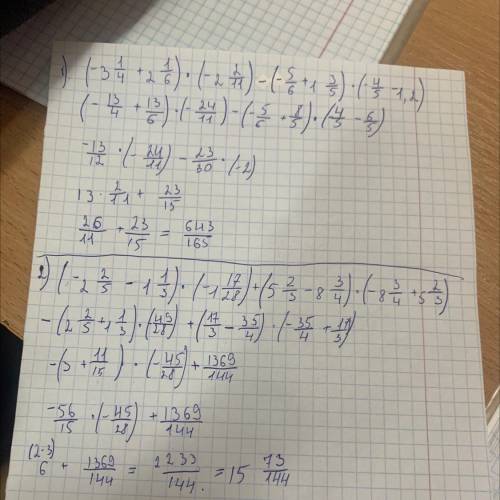 1) (-3 1/4 + 2 1/6) · (-2 2/11) - (-5/6 + 1 3/5) · (-4/5 - 1,2)
(-13/4 + 13/6) · (-24/11) - (-5/6 + 8/5) · (4/5 - 6/5)
-13/12 · (-24/11) - 23/30 · (-2)
13 · 2/11 + 23/15
26/11 + 23/15 = 643/165
2) (-2 2/5 - 1 1/3) · (-1 17/28) + (5 2/3 - 8 3/4) · (-8 3/4 + 5 2/3)
-(2 2/5 + 1 1/3) · (45/28) + (17/3 - 35/4) · (-35/4 + 17/3)
-(3 + 11/15) · (-45/28) + 1369/144
-56/15 · (-45/28) + 1369/144
(2·3)
6 + 1369/144 = 2233/144 = 15 73/144